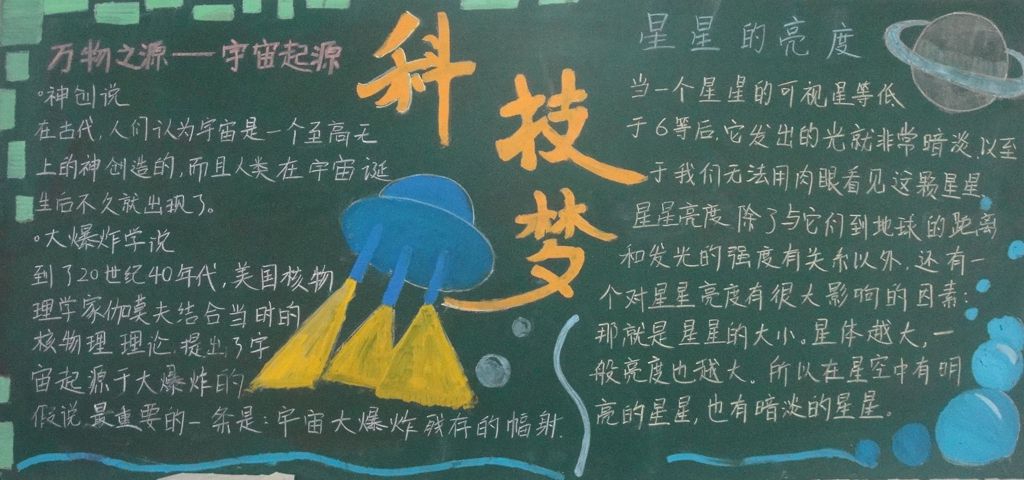 万物之源——宇宙起源
°神创说
在古代,人们认为宇宙是一个至高无
上的神创造的,而且人类在宇宙诞
生后不久就出现了。
°大爆炸学说
到了20世纪40年代,美国核物
理学家伽莫夫结合当时的
核物理理论,提出了宇
宙起源于大爆炸的
假说.最重要的一条是:宇宙大爆炸残存的幅射.
科技梦
星星的亮度
当一个星星的可视星等低
于6等后,它发出的光就非常暗淡,以至
于我们无法用肉眼看见这颗星星.
星星亮度除了与它们到地球的距离
和发光的强度有关系以外,还有一
个对星星亮度有很大影响的因素:
那就是星星的大小。星体越大,一
般亮度也越大。所以在星空中有明
亮的星星,也有暗淡的星星。